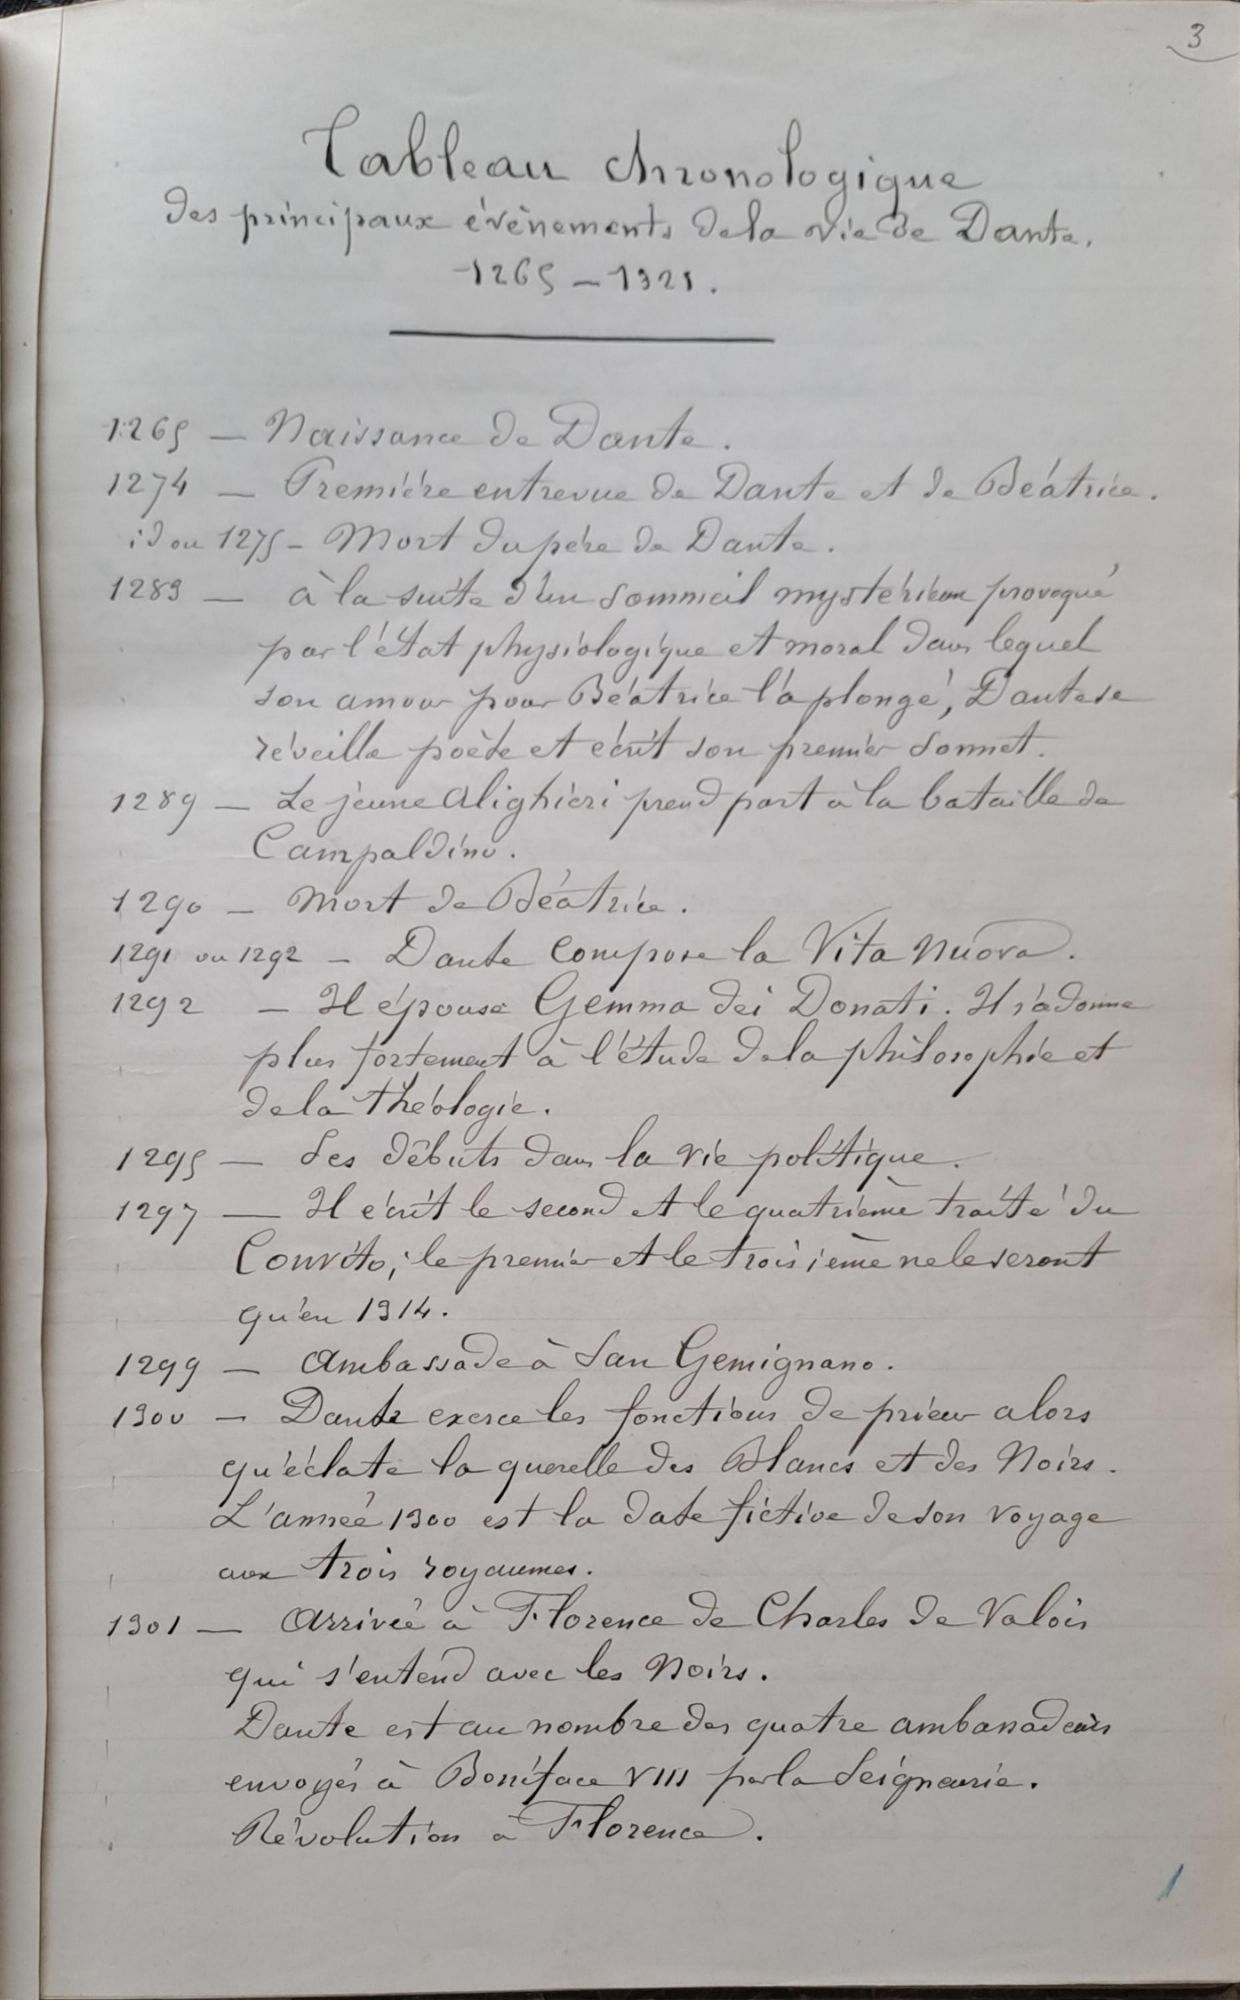 3
Tableau chronologique
des principaux évènements de la vie de Dante.
1265 – 1321.
1265 — Naissance de Dante.
1274 — Première entrevue de Dante et de Béatrice.
id ou 1275 – Mort du père de Dante.
1283 — à la suite d'un sommeil mystérieux provoqué
par l'état physiologique et moral dans lequel
son amour pour Béatrice l'a plongé, Dante se
réveille poète et écrit son premier sonnet.
1289 — Le jeune Alighieri prend part à la bataille de
Campaldino.
1290 — Mort de Béatrice.
1291 ou 1292 – Dante compose la Vita Nuova.
1292 — Il épouse Gemma dei Donati. Il s'adonne
plus fortement à l'étude de la philosophie et
de la théologie.
1295 — Ses débuts dans la vie politique.
1297 — Il écrit le second et le quatrième traité du
Convito; le premier et le troisième ne le seront
qu'en 1314.
1299 — Ambassade à San Gemignano.
1300 — Dante exerce les fonctions de prieur alors
qu'éclate la querelle des Blancs et des Noirs.
L'année 1300 est la date fictive de son voyage
aux trois royaumes.
1301 — Arrivée à Florence de Charles de Valois
qui s'entend avec les Noirs.
Dante est au nombre des quatre ambassadeurs
envoyés à Boniface VIII par la Seigneurie.
Révolution à Florence.
1